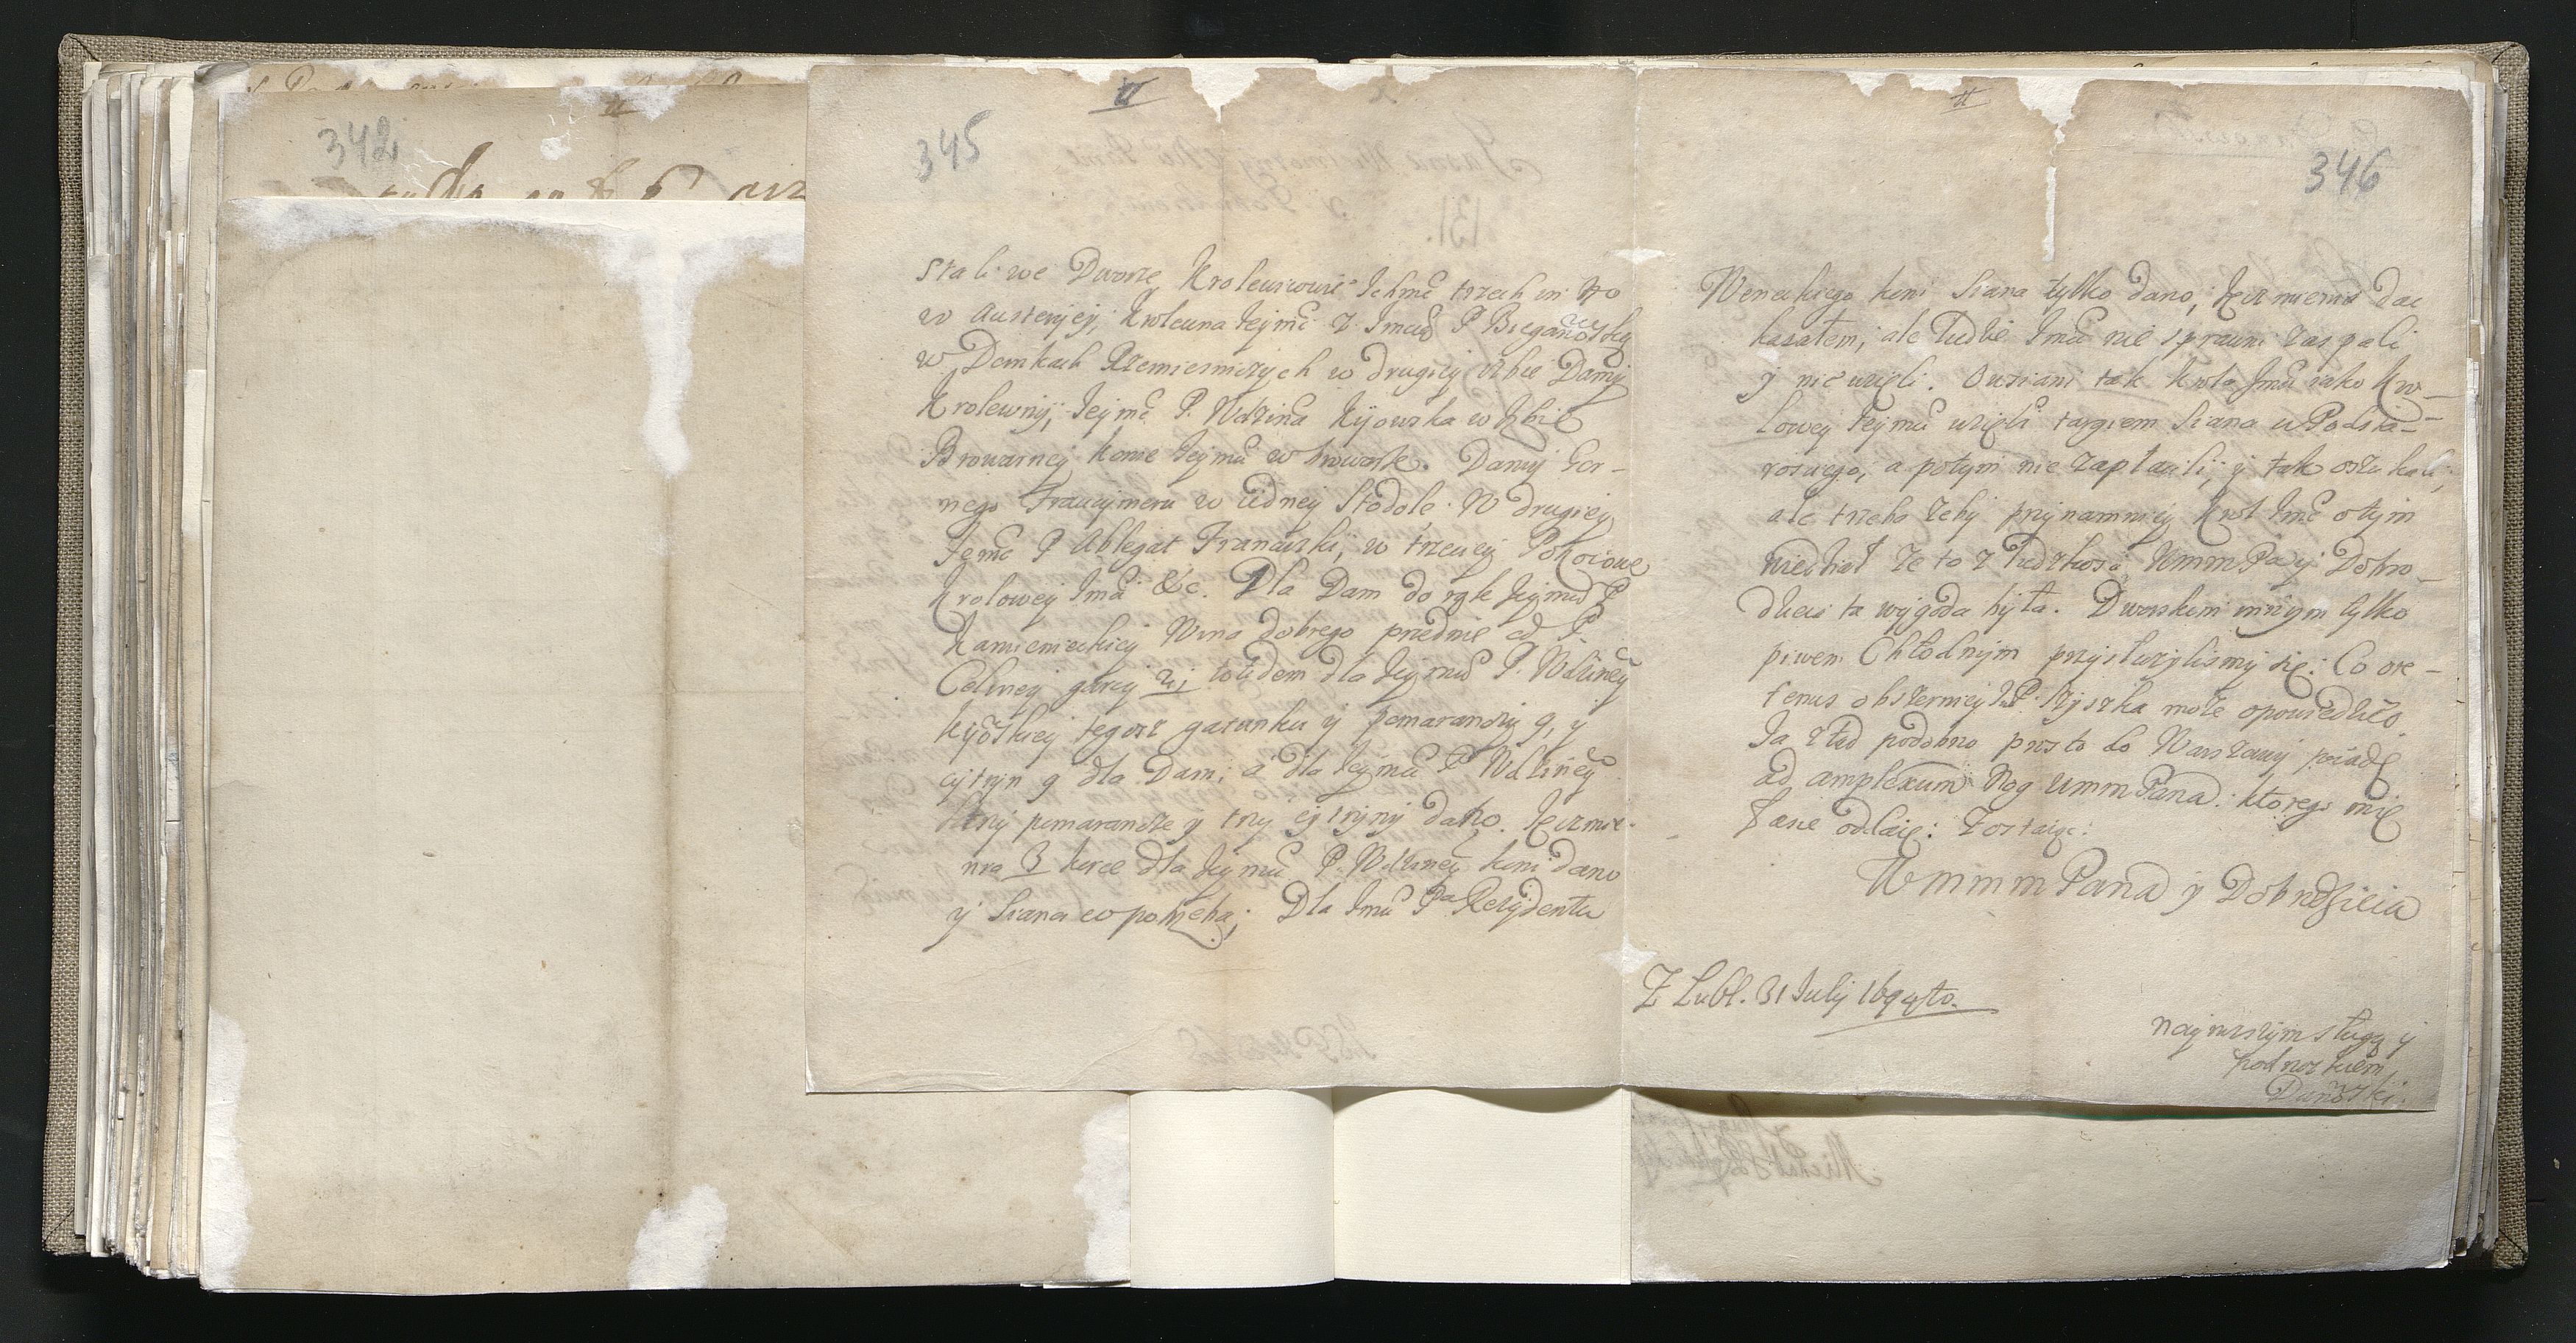 342
345
stali we Dworze, Krolewicowie Ichmć trzech in No
w Austeryey, Krolewna Jeymć z Imcią P Bieganowską
w Domkach Rzemiesniczych w drugiey izbie Damy
Krolewny, Jeymć P. Wdzina Kijowska w Izbie
Browarney konie Jeymci w browarze. Damy
nego Fraucymeru w iedney Stodole. W drugiey
Jemć P Ablegat Francuski, w trzeciey Pokoiowe
Krolowey Imci &c. Dla Dam do rąk Jeymci P
Kamienieckiey Wina dobrego przednie od P.
Celney garcy totidem dla Jeymci P. Wdziney
Kijowskiey tegosz gatunku y pomaranczy 9, y
cytryn 9 dla Dam; a dla Jeymci P Wdziney
trzy pomarancze y trzy cytryny dano. Jęczmie-
nia 3 korce dla Jeymci P. Wdziney koni dano
y Siana co potrzeba; Dla Imci Pa Rezydenta
346
Weneckiego koni Siana tylko dano, Jęczmienia dac
kazałem, ale Ludzie Imci nie sprawni zaspali
y nie wzięli. Owsiani tak Krola Jmci iako Kro-
lowey Jeymci wzięli targiem Siana u Podsta-
rosciego, a potym nie zapłacili, y tak oszukali;
ale trzeba zeby przynamniey Krol Jmć o tym
wiedział ze to z ludzkosci Wmm Pa y Dobro-
dzieia ta wygoda była. Dworskim innym tylko
piwem Chłodnym przysłuzylismy się: Co ore-
tenus obszerniey P. Szyszka moze opowiedziec.
Ja ztąd podobno prosto do Warszawy poiadę
ad amplexum Nog Wmm Pana: ktorego mię
Łasce oddaię: Zostaiąc:
Wmmm Pana y Dobrodzieia
Z Lubl. 31 July 1694to.
nayniszszym sługą y
podnoszkiem